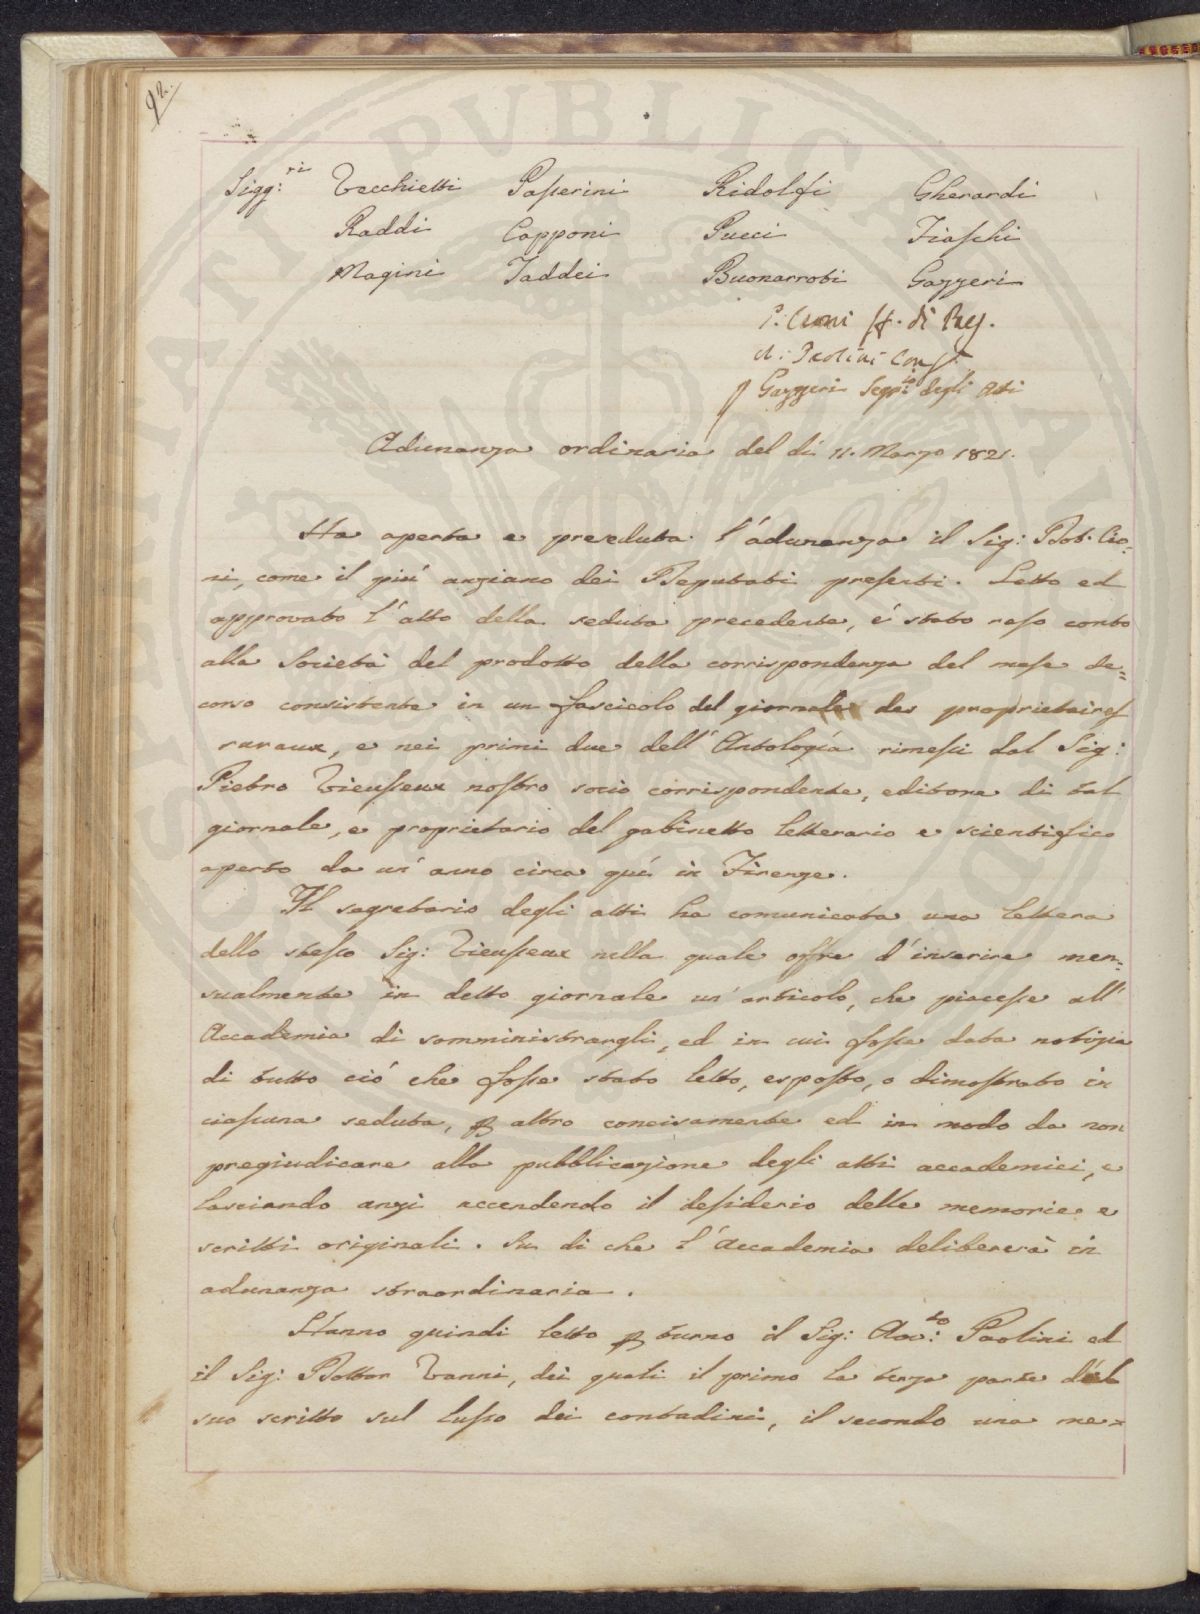 92.
Sigg:ri Vecchietti Passerini Ridolfi Gherardi
Raddi Capponi Pucci Fiaschi
Magini Taddei Buonarroti Gazzeri
P. Cioni ff. di Reg.
A: Paolini Cons.
Gazzeri Segr:io degli Atti
Adunanza ordinaria del dì 11. Marzo 1821.
Ha aperta e preseduta l'adunanza il Sig: Dot. Cio=
ni, come il più anziano dei Deputati presenti. Letto ed
approvato l'atto della seduta precedente, é stato reso conto
alla Società del prodotto della corrispondenza del mese de=
corso consistente in un fascicolo del giornale des proprietaires
ruraux, e nei primi due dell'Antologia rimessi dal Sig:
Pietro Vieusseux nostro socio corrispondente, editore di tal
giornale, e proprietario del gabinetto letterario e scientifico
aperto da un'anno circa quà in Firenze.
Il segretario degli atti ha comunicata una lettera
dello stesso Sig: Vieusseux nella quale offre d'inserire men=
sualmente in detto giornale un'articolo, che piacesse all'
Accademia di somministrargli, ed in cui fosse data notizia
di tutto ciò che fosse stato letto, esposto, o dimostrato in
ciascuna seduta, altro concisamente ed in modo da non
pregiudicare alla pubblicazione degli atti accademici, e
lasciando anzi accendendo il desiderio delle memorie e
scritti originali. Su di che l'Accademia delibererà in
adunanza straordinaria.
Hanno quindi letto p turno il Sig: Avv:to Paolini ed
il Sig: Dottor Vanni, dei quali il primo la terza parte del
suo scritto sul lusso dei contadini, il secondo una me=